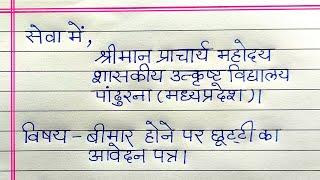 सेवा में,
श्रीमान प्राचार्य महोदय
शासकीय उत्कृष्ट विद्यालय
पांढुरना (मध्यप्रदेश)।
विषय - बीमार होने पर छूट्टी का
आवेदन पत्र।